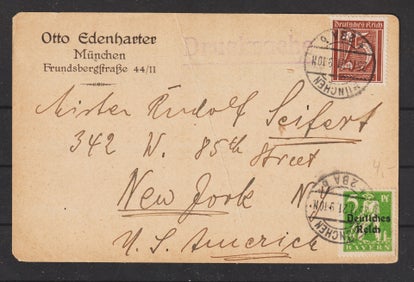 Otto Edenharter
München
Frundsbergstraße 44/II
Drucksache
Deutsches Reich
MÜNCHEN
Mister Rudolf Seifert
342 W. 85th Street
New York N.
U. S. America
4.-
MÜNCHEN
Deutsches
Reich
BAYERN